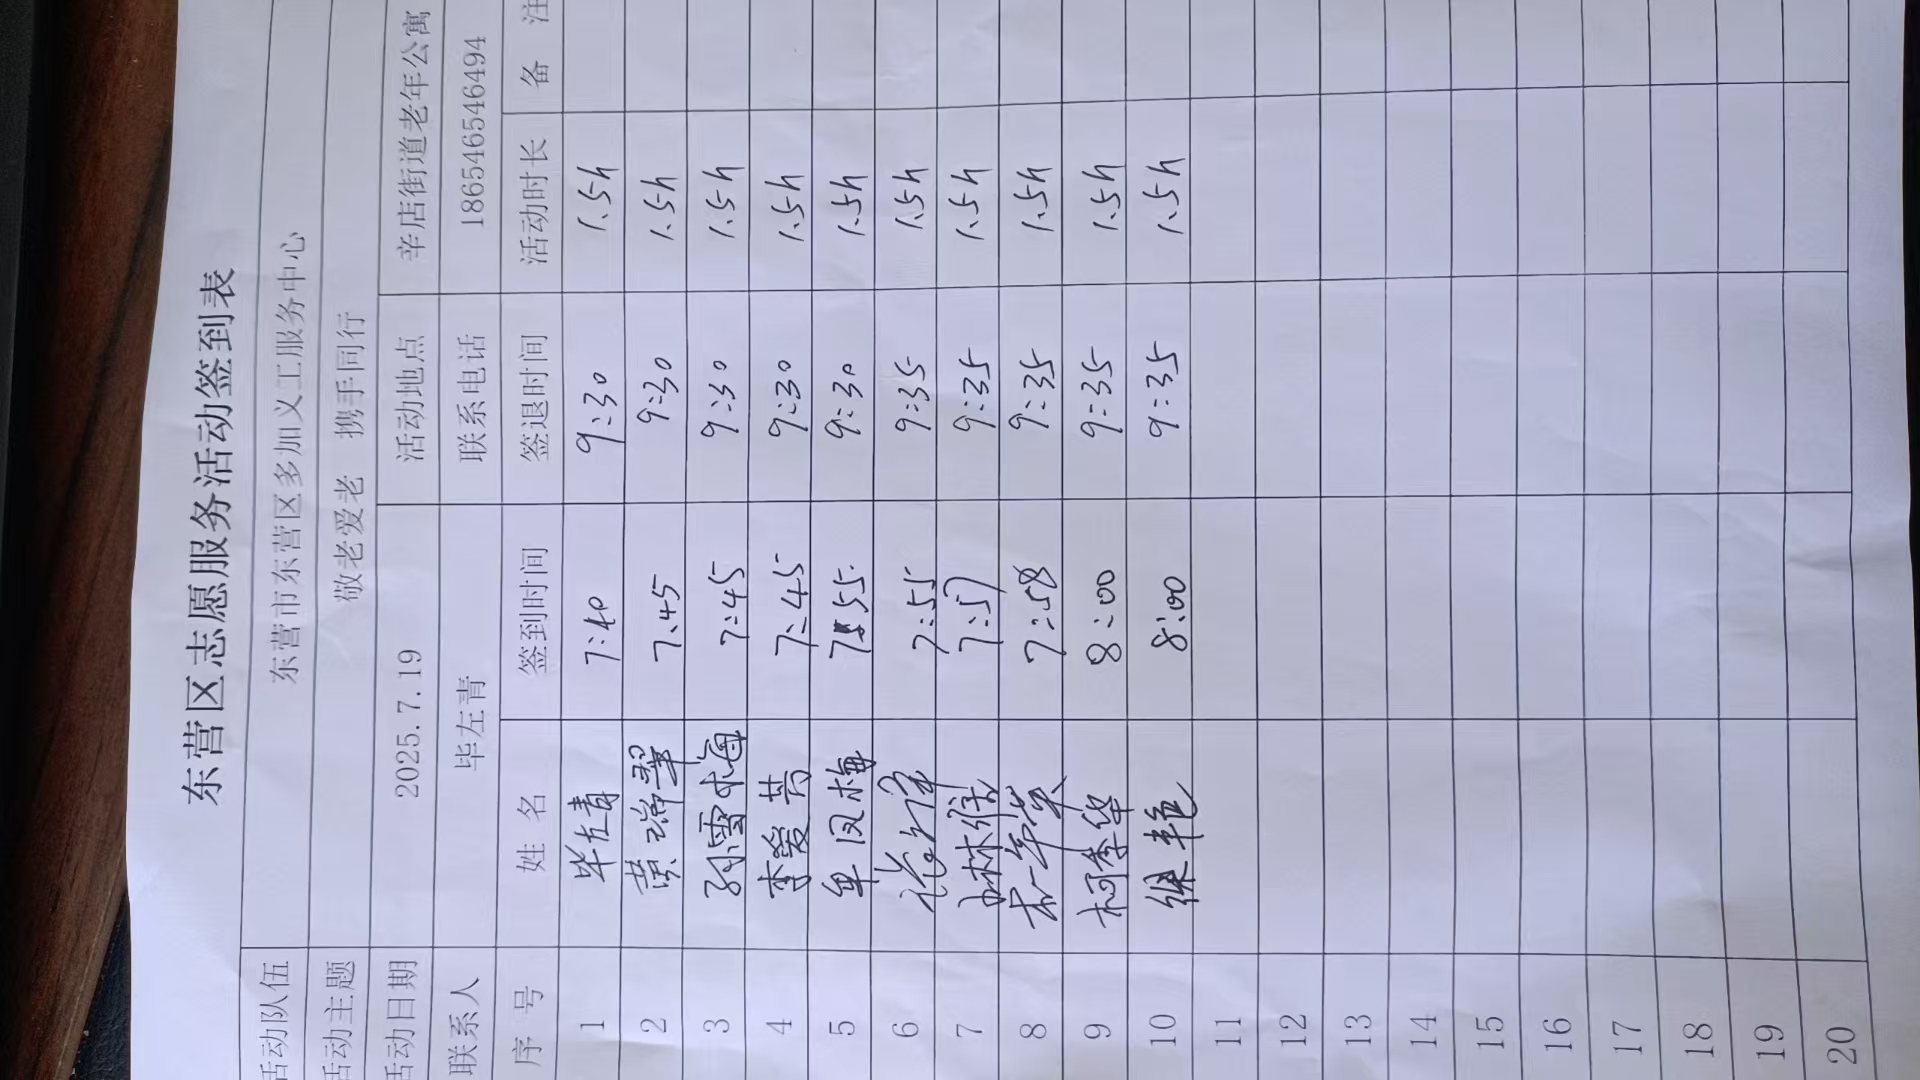 东营区志愿服务活动签到表
活动队伍 东营市东营区多加义工服务中心
活动主题 敬老爱老 携手同行
活动日期 2025.7.19 活动地点 辛店街道老年公寓
联系人 毕左青 联系电话 18654654649​4
序 号 姓 名 签到时间 签退时间 活动时长 备 注
1 毕左青 7:40 9:30 1.5h
2 黄瑞翠 7:45 9:30 1.5h
3 孙雪梅 7:45 9:30 1.5h
4 李爱芳 7:45 9:30 1.5h
5 单凤梅 7:55 9:30 1.5h
6 7:55 9:35 1.5h
7 7:57 9:35 1.5h
8 7:58 9:35 1.5h
9 柯季华 8:00 9:35 1.5h
10 8:00 9:35 1.5h
11
12
13
14
15
16
17
18
19
20